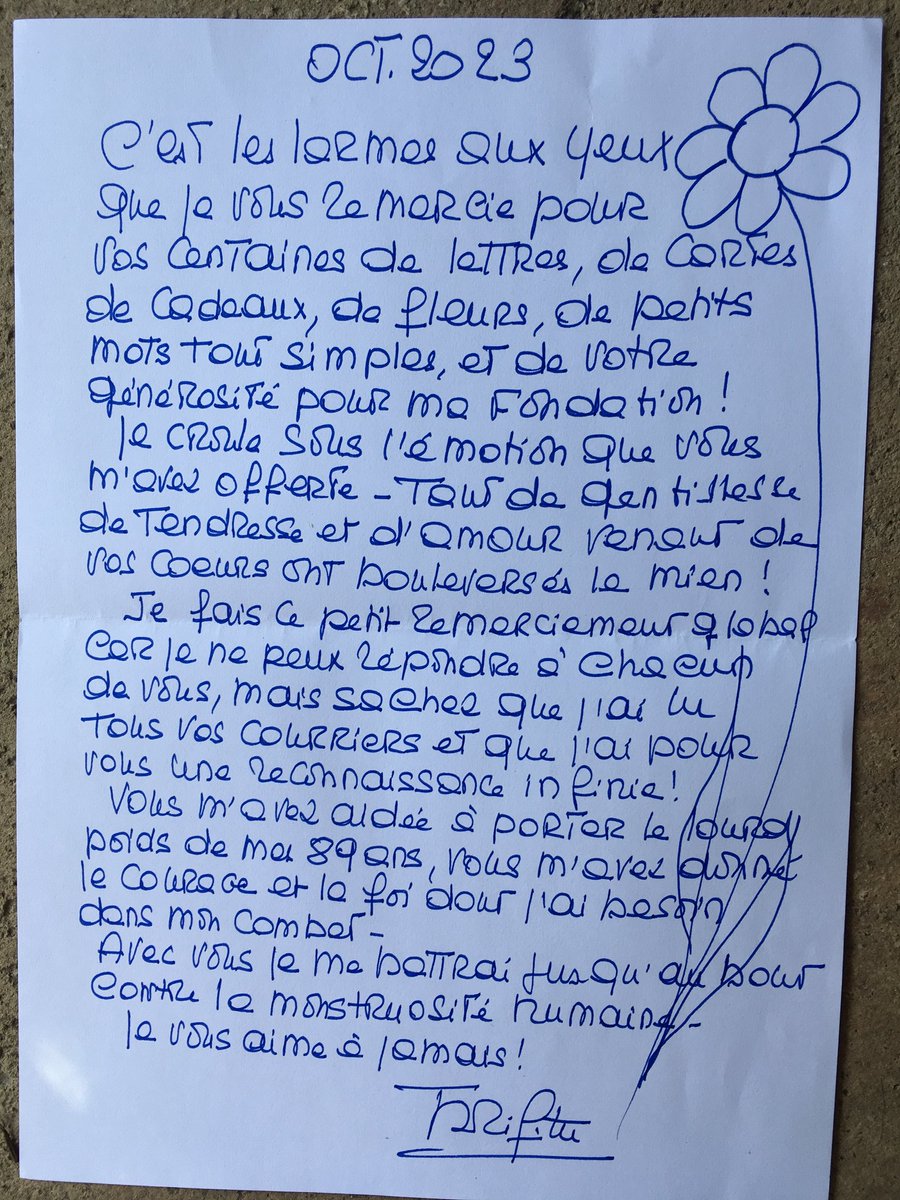 OCT. 2023
C'est les larmes aux yeux
que je vous remercie pour
vos centaines de lettres, de cartes
de cadeaux, de fleurs, de petits
mots tout simples, et de votre
générosité pour ma Fondation !
Je croule sous l'émotion que vous
m'avez offerte - Tant de gentillesse
de Tendresse et d'amour venant de
vos coeurs ont bouleversés le mien !
Je fais ce petit remerciement global
car je ne peux répondre à chacun
de vous, mais sachez que j'ai lu
tous vos courriers et que j'ai pour
vous une reconnaissance infinie !
Vous m'avez aidée à porter le lourd
poids de mes 89 ans, vous m'avez donné
le courage et la foi dont j'ai besoin
dans mon combat -
Avec vous je me battrai jusqu'au bout
contre la monstruosité humaine -
Je vous aime à jamais !
Brigitte